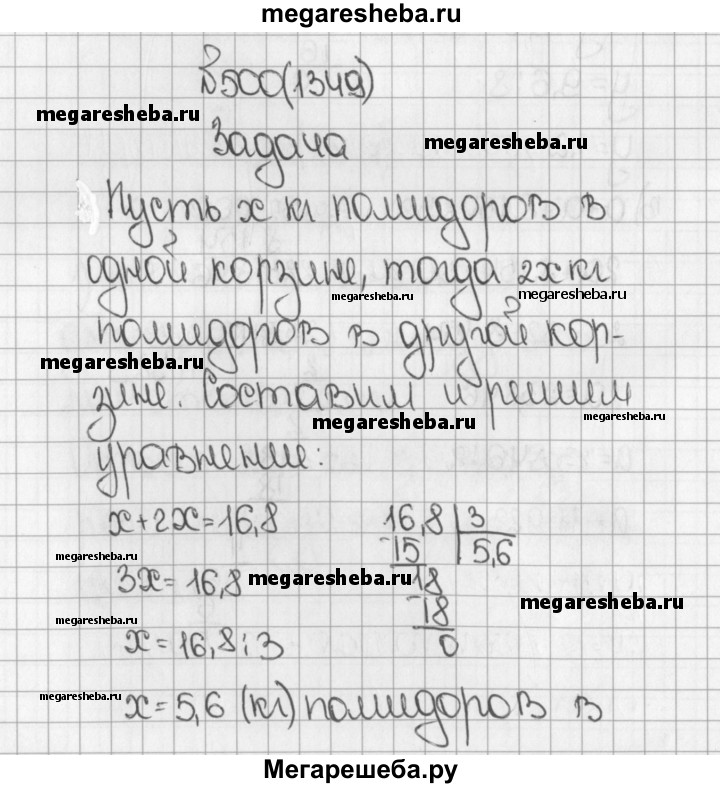 megaresheba.ru
№500(1349)
megaresheba.ru
Задача
megaresheba.ru
Пусть x кг помидоров в
одной корзине, тогда 2x кг
megaresheba.ru
megaresheba.ru
помидоров в другой кор-
megaresheba.ru
зине. Составим и решим
megaresheba.ru
megaresheba.ru
уравнение:
x+2x=16,8 16,8 3
-15 5,6
megaresheba.ru
3x=16,8 18
megaresheba.ru
-18
megaresheba.ru
megaresheba.ru
x=16,8:3 0
megaresheba.ru
x=5,6 (кг) помидоров в
Мегарешеба.ру